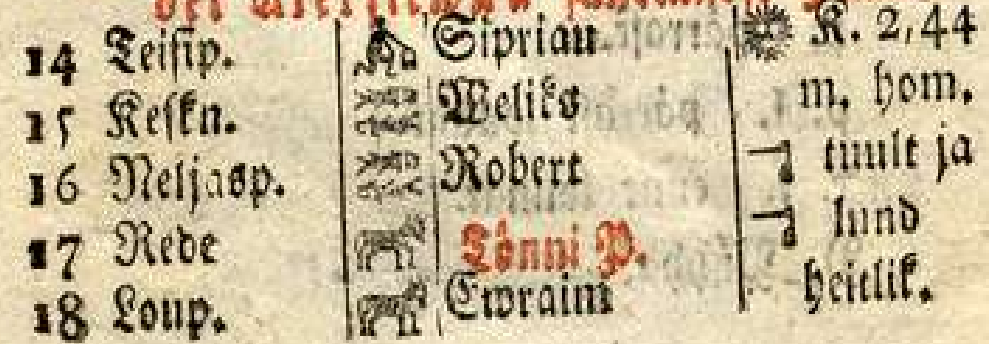 14 Teisip. Siprian K. 2,44
15 Keskn. Weliks m. hom.
16 Neljasp. Robert tuult ja
17 Rede Tönni P. lund
18 Loup. Ewraim heitlik.